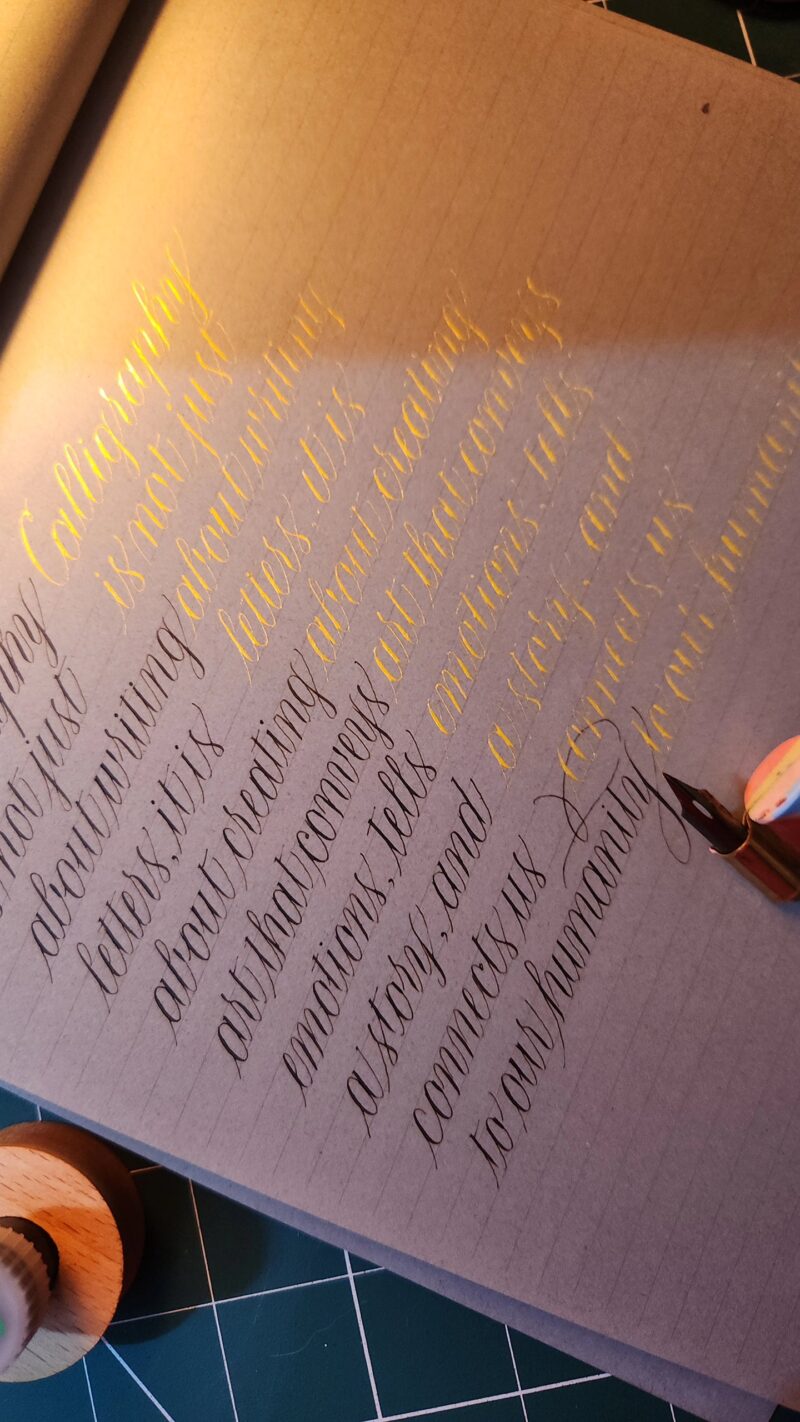 Calligraphy
is not just
about writing
letters, it is
about creating
art that conveys
emotions, tells
a story, and
connects us
to our
phy
not just
about writing
letters, it is
about creating
art that conveys
emotions, tells
a story, and
connects us
to our humanity